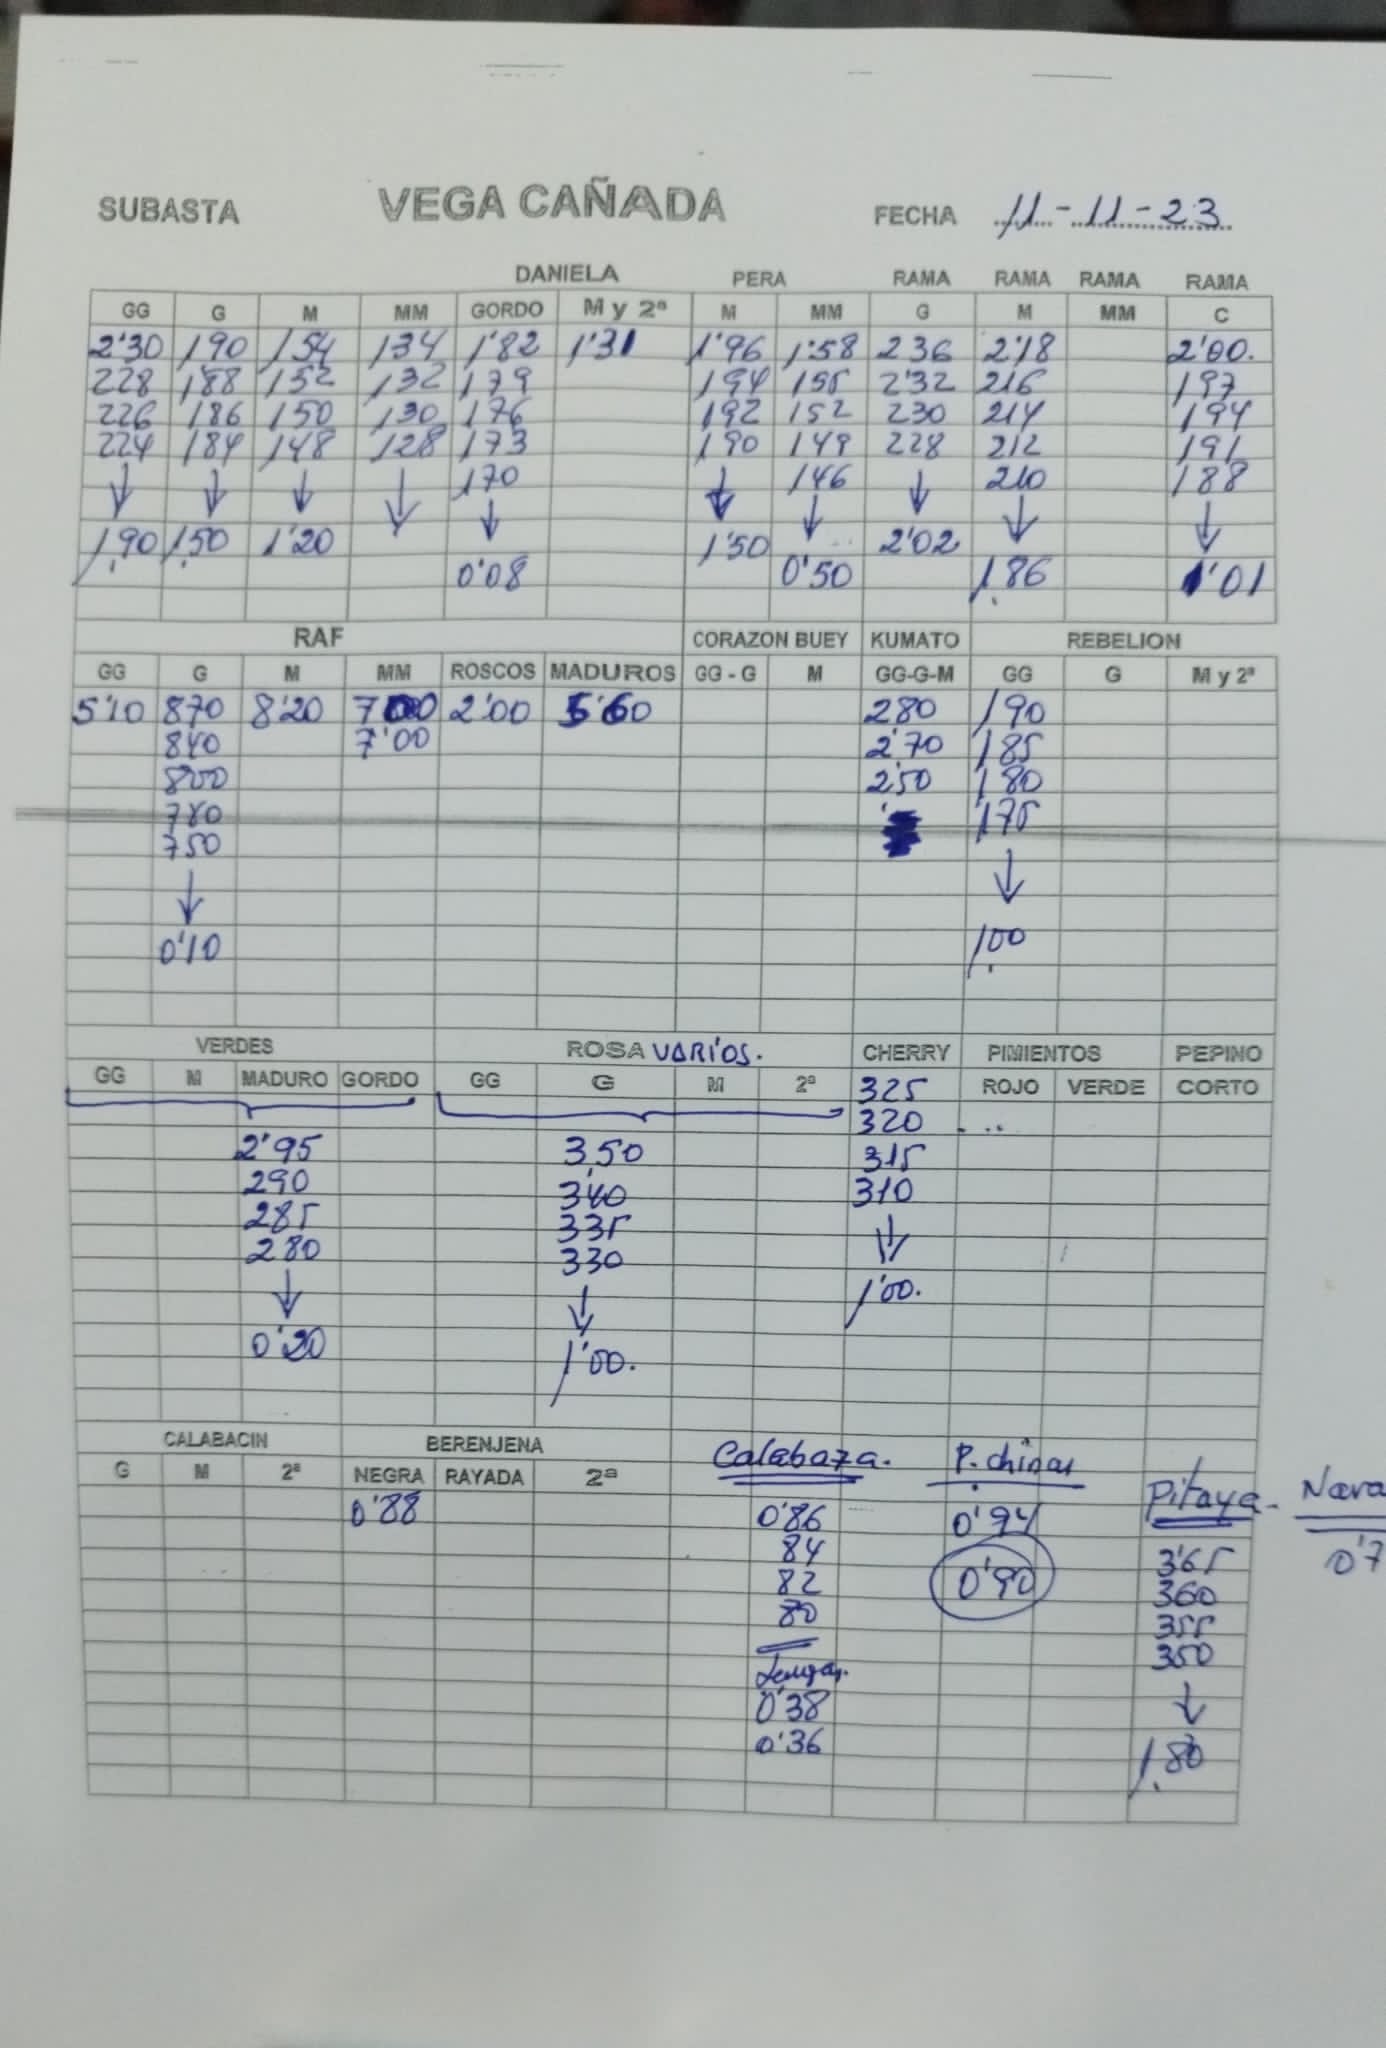 SUBASTA VEGA CAÑADA FECHA 11-11-23
DANIELA PERA RAMA RAMA RAMA RAMA
GG G M MM GORDO M y 2ª M MM G M MM C
2'30 190 154 134 1'82 1'31 1'96 1'58 236 2'18 2'00.
228 188 152 132 179 194 155 2'32 216 197
226 186 150 130 176 192 152 230 214 194
224 184 148 128 173 190 149 228 212 191
170 146 210 188
1,90 1,50 1'20 1'50 2'02
0'08 0'50 1,86 1'01
RAF CORAZON BUEY KUMATO REBELION
GG G M MM ROSCOS MADUROS GG - G M GG-G-M GG G M y 2ª
5'10 870 8'20 700 2'00 5'60 280 190
840 7'00 2'70 185
800 250 180
780 175
750
0'10 1,00
VERDES ROSA VARIOS. CHERRY PIMIENTOS PEPINO
GG M MADURO GORDO GG G M 2ª 325 ROJO VERDE CORTO
320
2'95 3,50 315
290 340 310
285 335
280 330
1'00.
0'20 1'00.
CALABACIN BERENJENA Calabaza. P. chinas
G M 2ª NEGRA RAYADA 2ª Pitaya-
0'88 0'86 0'94
84 3'65
82 0'90 360
80 355
350
0'38
0'36 1,80